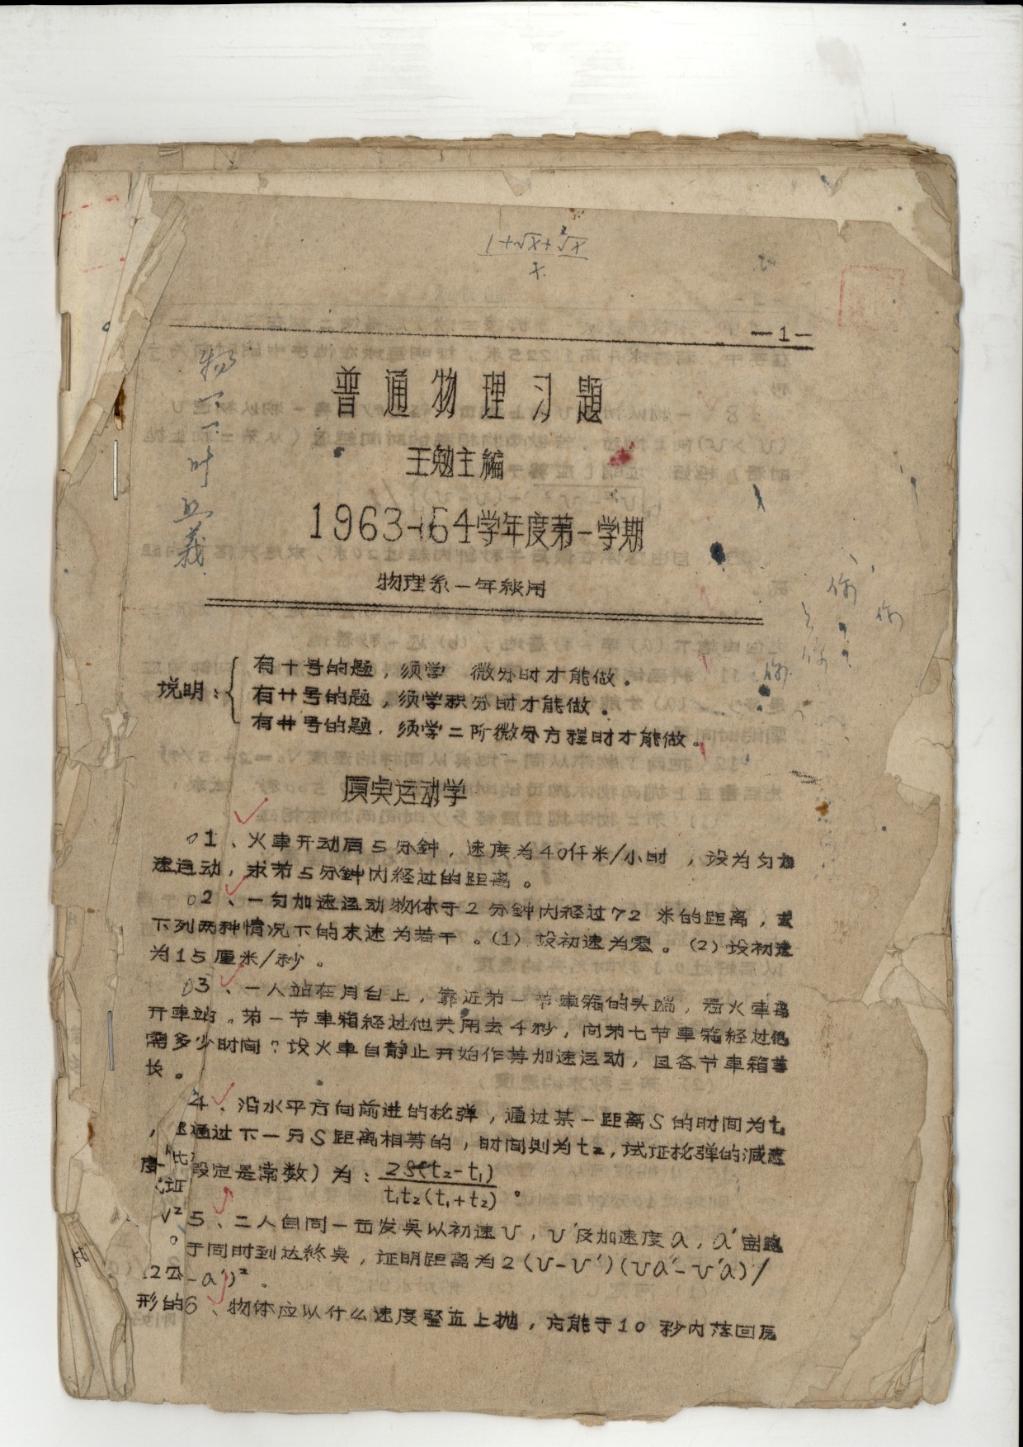 —1—
普通物理习题
王勉主编
1963-64学年度第一学期
物理系一年级用
说明：
有十号的题，须学 微分时才能做。
有廿号的题，须学积分时才能做。
有卅号的题，须学二阶微分方程时才能做。
质点运动学
1、火車开动后5分钟，速度为40仟米/小时，设为匀加
速运动，求第5分钟内经过的距离。
2、一匀加速运动物体于2分钟内经过72米的距离，
下列两种情况下的末速为若干。(1)设初速为零。(2)设初速
为15厘米/秒。
3、一人站在月台上，靠近第一节車箱的头端，火車
开車站。第一节車箱经过他共用去4秒，问第七节車箱经过他
需多少时间？设火車自静止开始作等加速运动，且各节車箱等
长。
4、沿水平方向前进的枪弹，通过某一距离S的时间为t₁
，通过下一另S距离相等的，时间则为t₂，试证枪弹的减速
度(设定是常数)为：2S(t₂-t₁)/t₁t₂(t₁+t₂)。
5、二人自同一击发点以初速υ，υ′及加速度a，a′
于同时到达终点，证明距离为2(υ-υ′)(υa′-υ′a)/
-a′)²。
形的6、物体应以什么速度竖直上抛，方能于10秒内落回原